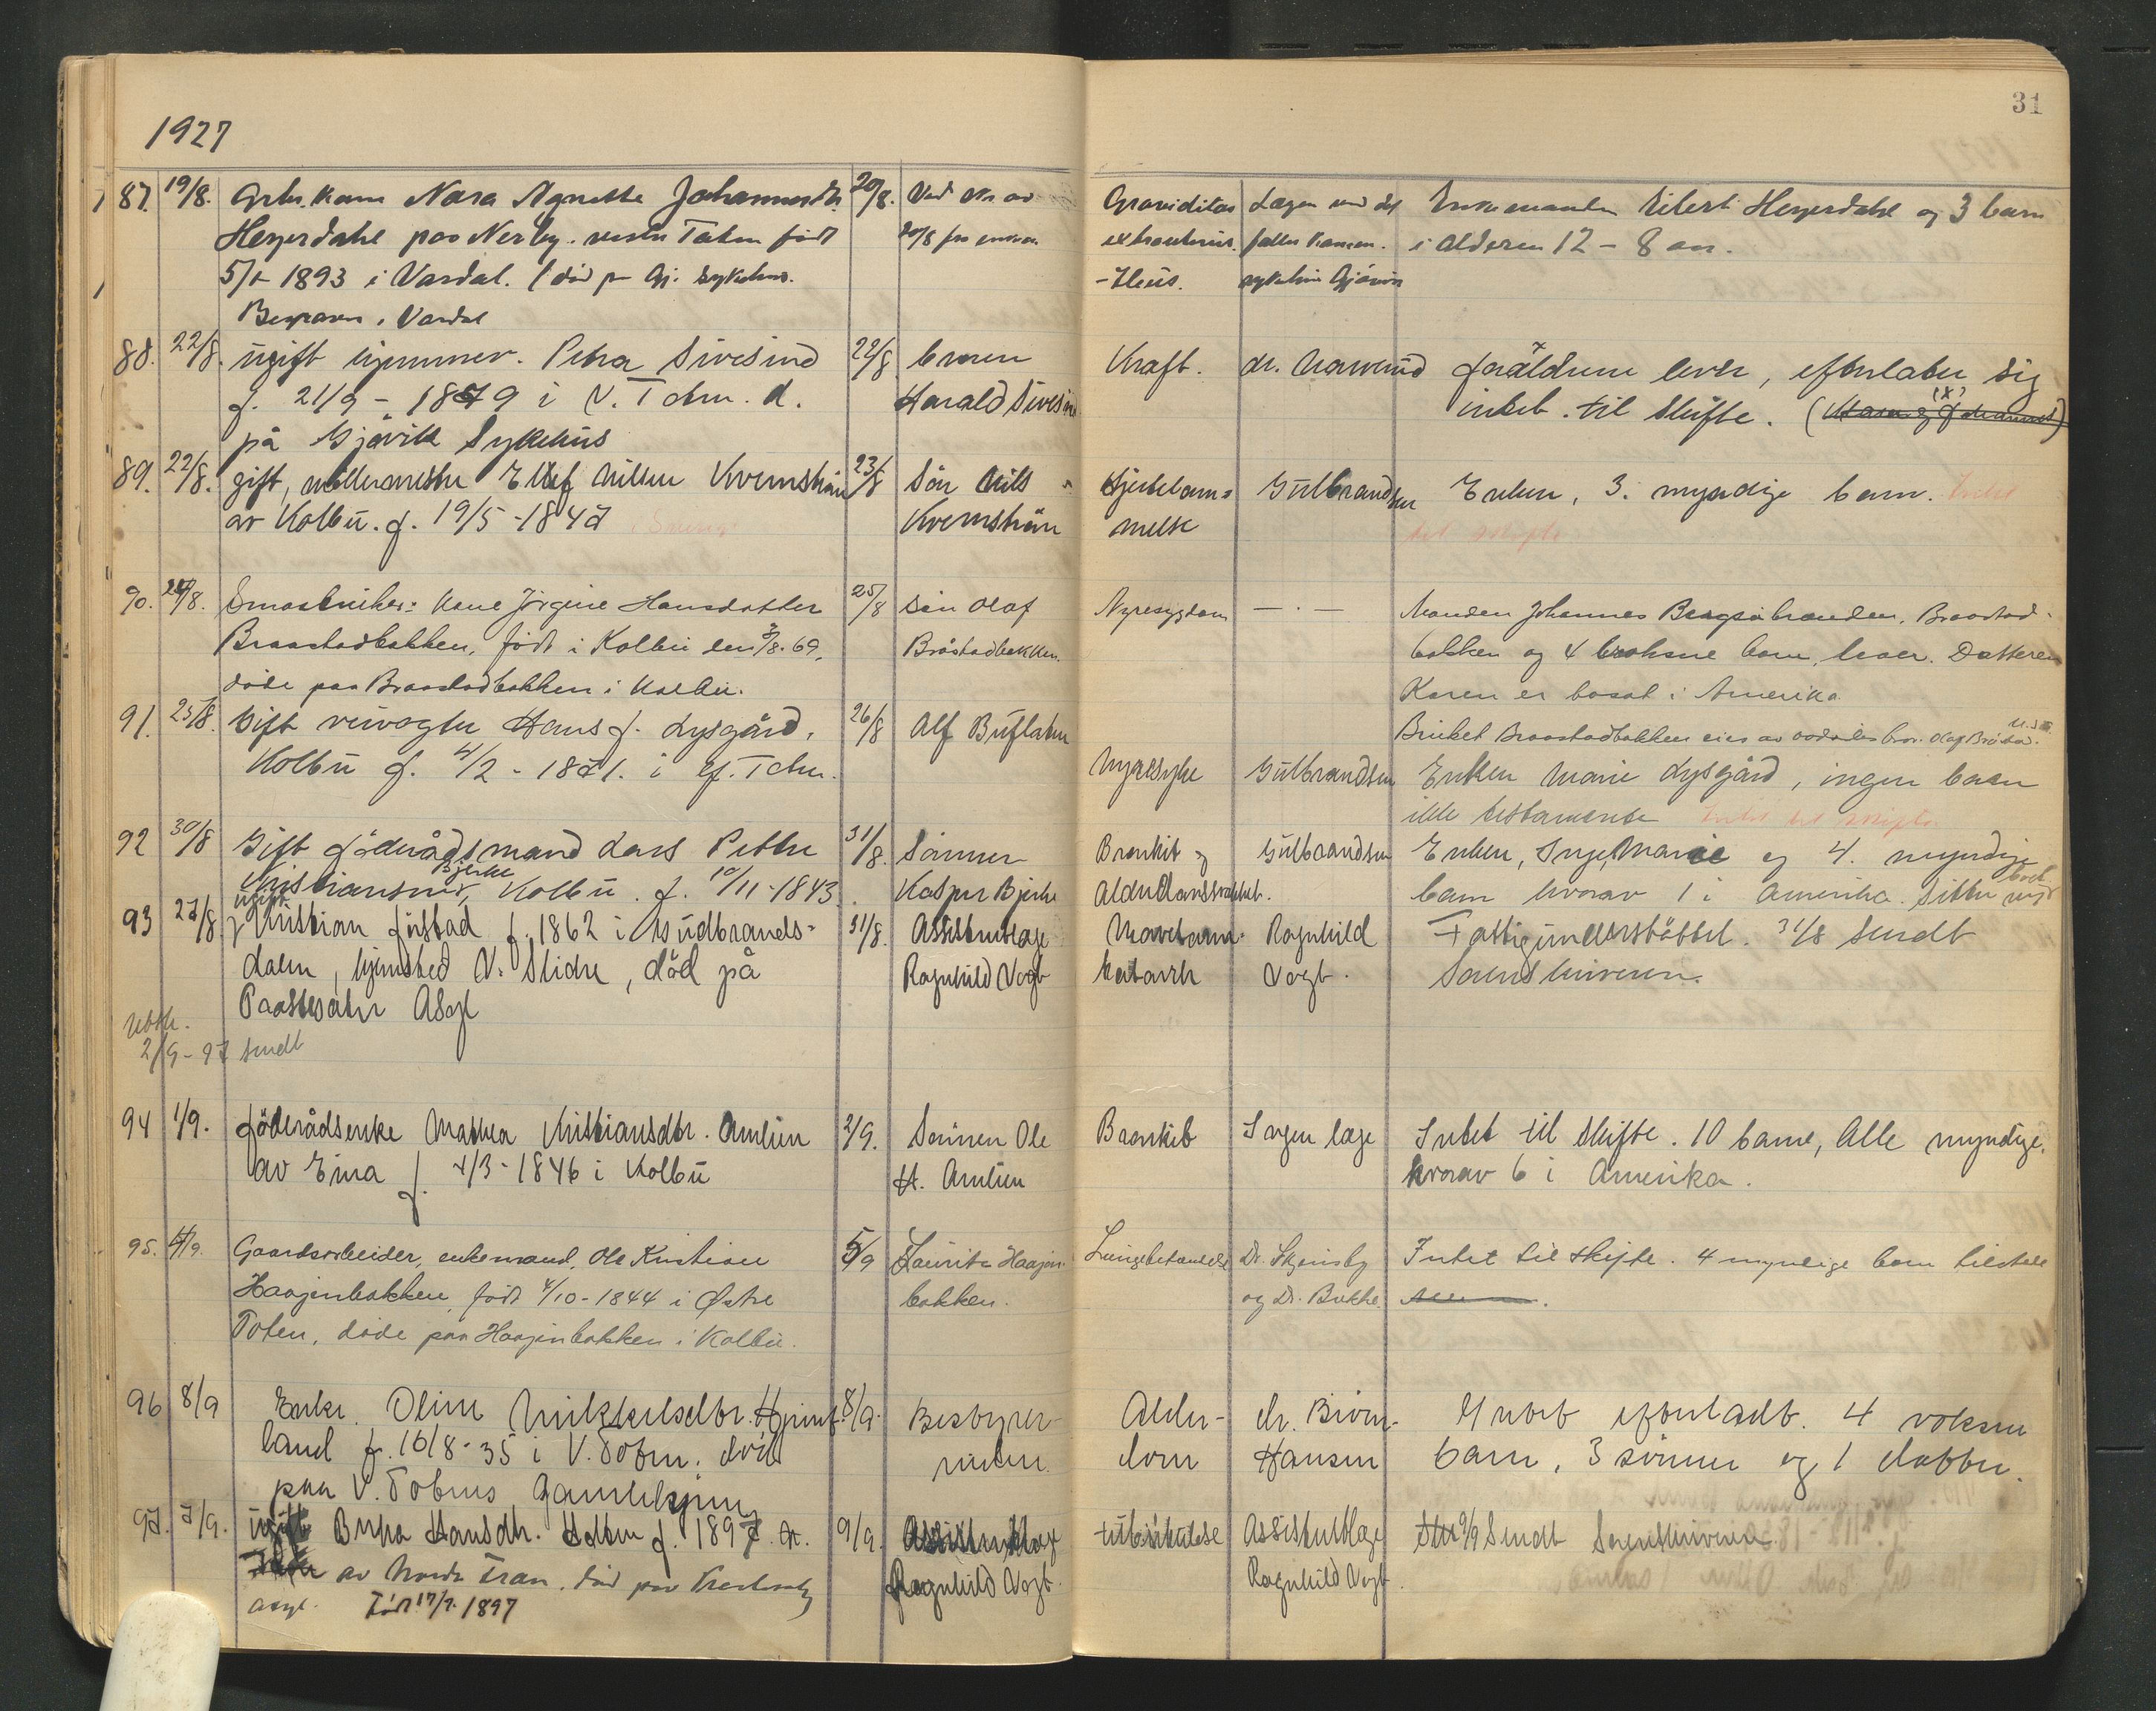 31
1927
87. 19/8. Grbr. kone Nara Agnethe Johannesdtr. 20/8. Ved skr av
Heyerdahl paa Nerby. vestre Toten född 20/8 fra
5/1 1893 i Vardal. (död p Gj. sykehus.
Begraves i Vardal
88. 22/8. ugift hjemmev. Petra Sivesind 22/8 broren
f. 21/9 - 1879 i V. Toten. d. Harald Sivesind
på Gjøvik Sykehus
89. 22/8. gift, möllermester Ellef Nilsen Kvemshön 23/8 Sön Nils
av Kolbu. f. 19/5 - 1847 Kvemshön
90. 24/8. Smaabruker: kone Jörgine Hansdatter 25/8 Sön Olaf
Braastadbakken, född i Kolbu den 3/8. 69, Bråstadbakken.
döde paa Braastadbakken i Kolbu.
91. 25/8. Gift veivogter Hans J. Lysgård, 26/8 Alf Buflaten
Kolbu f. 4/2 - 1871. i Ö. Toten.
92 30/8 Gift föderådsmand Lars Petter 31/8. Sönnen
Bjerke
Kristiansen, Kolbu. f. 10/11 - 1843 Kasper Bjerke
ugift
93 27/8 Kristian Fystad f. 1862 i Gudbrands- 31/8. Assistentlæge
dalen, hjemsted V. Slidre, död på Ragnhild Vogt
Asyl
Utskr.
2/9 - 27 sendt
94 1/9. föderådsenke Mathea Kristiansdtr. Amlien 2/9. Sönnen Ole
av Eina f. 4/3 - 1846 i Kolbu H. Amlien
95. 4/9. Gaardsarbeider, enkemand, Ole Kristian 5/9 Laurits Haajen-
Haajenbakken, född 4/10 - 1844 i Østre bakken.
Toten, döde paa Haajenbakken i Kolbu.
96 8/9 Enke. Oline Mikkelsdtr. 8/9. Bestyrer-
land f. 16/8 - 35 i V. Toten. död inden.
paa V. Totens Gamlehjem
97. 7/9. ugift Berta Hansdtr. Holten f. 1897. 9/9. Assistentlæge
av Nordre Tran. död paa Ragnhild Vogt.
asyl. Född 17/7. 1897
Graviditas Lægen ved det Enkemanden Eilert Heyerdahl og 3 barn
extrauterin. sykehus Gjövik i alderen 12 - 8 aar.
- Ileus.
Kraft. dr. Narverud forældrene lever, efterlater sig
intet til skifte. (Karen og Johannes)
Hjertelam- Gulbrandsen Enken, 3. myndige barn. Intet
melse til skifte
Nyresygdom — . — Manden Johannes Bergsåbraaden, Braastad-
bakken og 4 voksne barn, lever. Datteren
Karen er bosat i Amerika
Bruket Braastadbakken eies av avdödes bror. Olaf Bråstad.
Nyresyke Gulbrandsen Enken Marie Lysgård, ingen barn
ikke testamente Intet til skifte
Bronkit og Gulbrandsen Enken, Inge Marie og 4. myndige
Alderdomssvakhet. barn hvorav 1 i Amerika. Sitter uskiftet bo
Mavetarm- Ragnhild Fattigunderstöttet. 31/8 sendt
katarrh Vogt. Sorenskriveren.
Bronkit Ingen læge Intet til skifte. 10 barn, Alle myndige.
hvorav 6 i Amerika.
Lungebetændelse Dr. Skjensby Intet til skifte. 4 myndige barn tilstede
og Dr. Bakke.
Alder- dr. Biörn- Intet efterladt. 4 voksne
dom Hansen barn, 3 sönner og 1 datter.
tuberkulose Assistentlæge 9/9 Sendt Sorenskriveren.
Ragnhild Vogt.